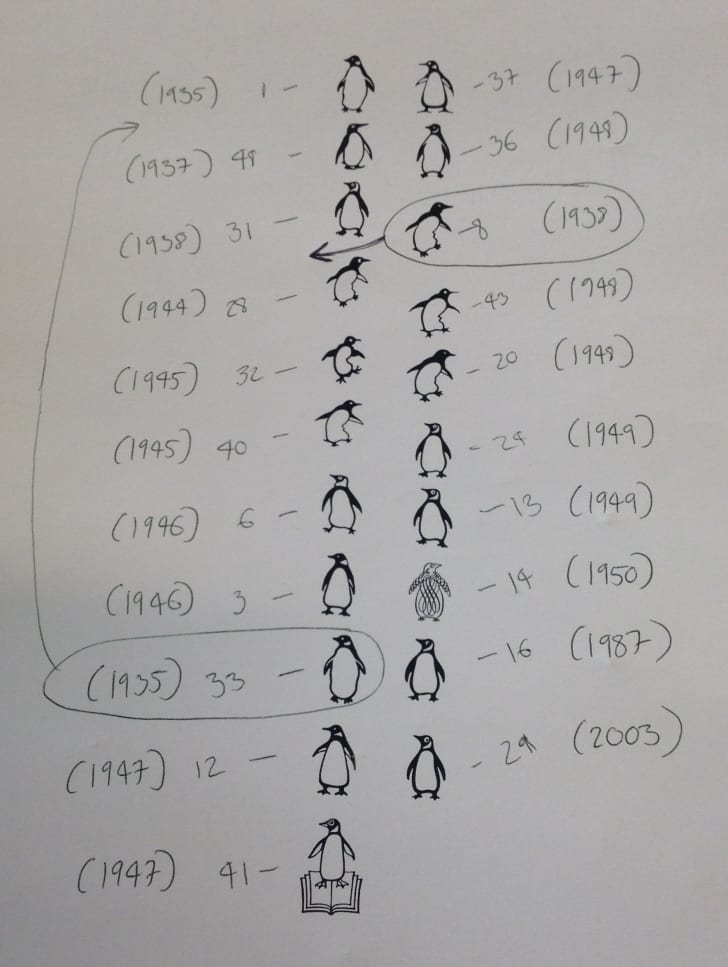 (1935) 1 -
(1937) 48 -
(1938) 31 -
(1944) 28 -
(1945) 32 -
(1945) 40 -
(1946) 6 -
(1946) 3 -
(1935) 33 -
(1947) 12 -
(1947) 41 -
- 37 (1947)
- 36 (1948)
- 8 (1938)
- 43 (1948)
- 20 (1948)
- (1949)
- 13 (1949)
- 14 (1950)
- 16 (1987)
- (2003)